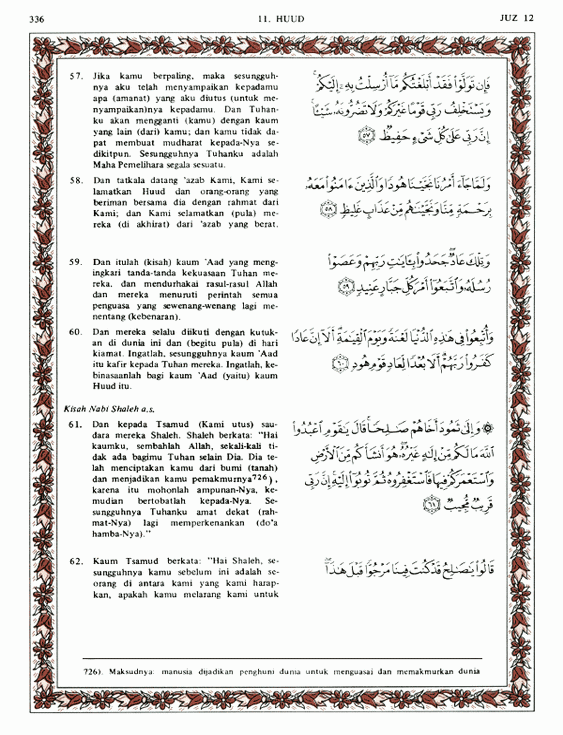 336
11. HUUD
JUZ 12
57. Jika kamu berpaling, maka sesungguh-
nya aku telah menyampaikan kepadamu
apa (amanat) yang aku diutus (untuk me-
nyampaikan)nya kepadamu. Dan Tuhan-
ku akan mengganti (kamu) dengan kaum
yang lain (dari) kamu; dan kamu tidak da-
pat membuat mudharat kepada-Nya se-
dikitpun. Sesungguhnya Tuhanku adalah
Maha Pemelihara segala sesuatu.
فَإِن تَوَلَّوْا۟ فَقَدْ أَبْلَغْتُكُم مَّآ أُرْسِلْتُ بِهِۦٓ إِلَيْكُمْ ۚ
وَيَسْتَخْلِفُ رَبِّى قَوْمًا غَيْرَكُمْ وَلَا تَضُرُّونَهُۥ شَيْـًٔا ۚ
إِنَّ رَبِّى عَلَىٰ كُلِّ شَىْءٍ حَفِيظٌ ﴿٥٧﴾
58. Dan tatkala datang 'azab Kami, Kami se-
lamatkan Huud dan orang-orang yang
beriman bersama dia dengan rahmat dari
Kami; dan Kami selamatkan (pula) me-
reka (di akhirat) dari 'azab yang berat.
وَلَمَّا جَآءَ أَمْرُنَا نَجَّيْنَا هُودًا وَٱلَّذِينَ ءَامَنُوا۟ مَعَهُۥ
بِرَحْمَةٍ مِّنَّا وَنَجَّيْنَٰهُم مِّنْ عَذَابٍ غَلِيظٍ ﴿٥٨﴾
59. Dan itulah (kisah) kaum 'Aad yang meng-
ingkari tanda-tanda kekuasaan Tuhan me-
reka, dan mendurhakai rasul-rasul Allah
dan mereka menuruti perintah semua
penguasa yang sewenang-wenang lagi me-
nentang (kebenaran).
وَتِلْكَ عَادٌ ۖ جَحَدُوا۟ بِـَٔايَٰتِ رَبِّهِمْ وَعَصَوْا۟
رُسُلَهُۥ وَٱتَّبَعُوٓا۟ أَمْرَ كُلِّ جَبَّارٍ عَنِيدٍ ﴿٥٩﴾
60. Dan mereka selalu diikuti dengan kutuk-
an di dunia ini dan (begitu pula) di hari
kiamat. Ingatlah, sesungguhnya kaum 'Aad
itu kafir kepada Tuhan mereka. Ingatlah, ke-
binasaanlah bagi kaum 'Aad (yaitu) kaum
Huud itu.
وَأُتْبِعُوا۟ فِى هَٰذِهِ ٱلدُّنْيَا لَعْنَةً وَيَوْمَ ٱلْقِيَٰمَةِ ۗ أَلَآ إِنَّ عَادًا
كَفَرُوا۟ رَبَّهُمْ ۗ أَلَا بُعْدًا لِّعَادٍ قَوْمِ هُودٍ ﴿٦٠﴾
Kisah Nabi Shaleh a.s.
61. Dan kepada Tsamud (Kami utus) sau-
dara mereka Shaleh. Shaleh berkata: "Hai
kaumku, sembahlah Allah, sekali-kali ti-
dak ada bagimu Tuhan selain Dia. Dia te-
lah menciptakan kamu dari bumi (tanah)
dan menjadikan kamu pemakmurnya726),
karena itu mohonlah ampunan-Nya, ke-
mudian bertobatlah kepada-Nya. Se-
sungguhnya Tuhanku amat dekat (rah-
mat-Nya) lagi memperkenankan (do'a
hamba-Nya)."
۞ وَإِلَىٰ ثَمُودَ أَخَاهُمْ صَٰلِحًا ۚ قَالَ يَٰقَوْمِ ٱعْبُدُوا۟
ٱللَّهَ مَا لَكُم مِّنْ إِلَٰهٍ غَيْرُهُۥ ۖ هُوَ أَنشَأَكُم مِّنَ ٱلْأَرْضِ
وَٱسْتَعْمَرَكُمْ فِيهَا فَٱسْتَغْفِرُوهُ ثُمَّ تُوبُوٓا۟ إِلَيْهِ ۚ إِنَّ رَبِّى
قَرِيبٌ مُّجِيبٌ ﴿٦١﴾
62. Kaum Tsamud berkata: "Hai Shaleh, se-
sungguhnya kamu sebelum ini adalah se-
orang di antara kami yang kami harap-
kan, apakah kamu melarang kami untuk
قَالُوا۟ يَٰصَٰلِحُ قَدْ كُنتَ فِينَا مَرْجُوًّا قَبْلَ هَٰذَآ ۖ
726). Maksudnya: manusia dijadikan penghuni dunia untuk menguasai dan memakmurkan dunia